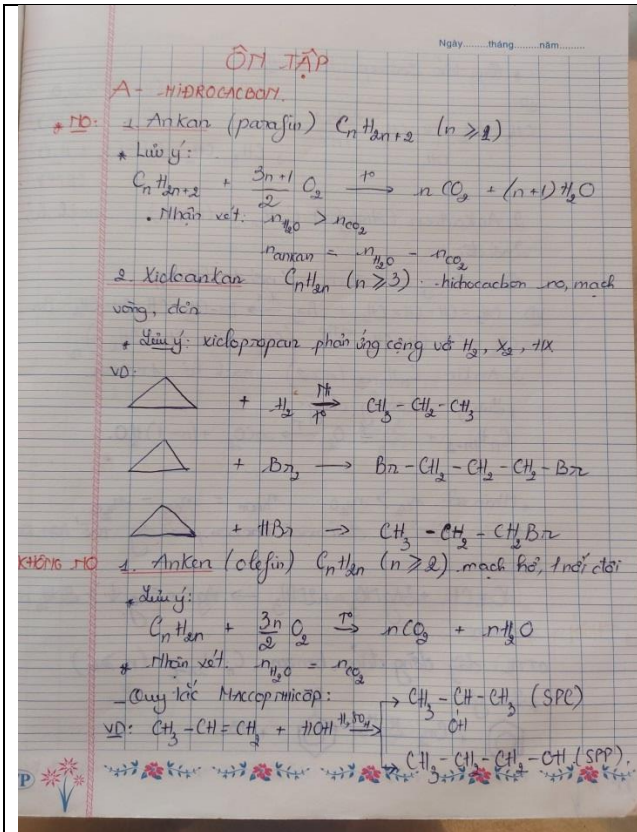 Ngày.........tháng.........năm.........
ÔN TẬP
A - HIĐROCACBON.
* NO: 1. Ankan (parafin) CₙH₂ₙ₊₂ (n ≥ 1)
* Lưu ý:
CₙH₂ₙ₊₂ + (3n+1)/2 O₂ —t°→ n CO₂ + (n+1) H₂O
• Nhận xét: n_H₂O > n_CO₂
n_ankan = n_H₂O - n_CO₂
2. Xicloankan CₙH₂ₙ (n ≥ 3): hiđrocacbon no, mạch
vòng, đơn
* Lưu ý: xiclopropan phản ứng cộng với H₂, X₂, HX
VD:
+ H₂ —Ni, t°→ CH₃ - CH₂ - CH₃
+ Br₂ → Br - CH₂ - CH₂ - CH₂ - Br
+ HBr → CH₃ - CH₂ - CH₂Br
KHÔNG NO 1. Anken (olefin) CₙH₂ₙ (n ≥ 2) mạch hở, 1 nối đôi
* Lưu ý:
CₙH₂ₙ + 3n/2 O₂ —T°→ nCO₂ + nH₂O
* Nhận xét: n_H₂O = n_CO₂
- Quy tắc Maccopnhicop:
→ CH₃ - CH - CH₃ (SPC)
OH
VD: CH₃ - CH = CH₂ + HOH —H₂SO₄→
→ CH₃ - CH₂ - CH₂ - OH (SPP).